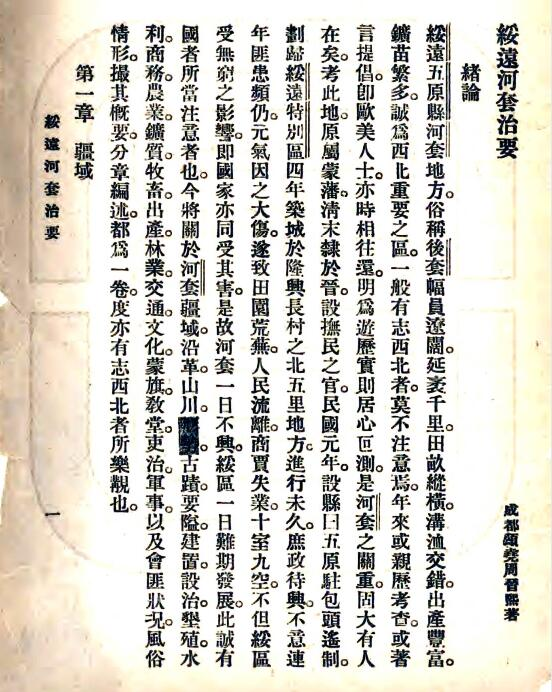 綏遠河套治要
成都頌堯周晉熙著
緒論
綏遠五原縣河套地方。俗稱後套。幅員遼闊。延袤千里。田畝縱橫。溝洫交錯。出產豐富。
鑛苗繁多。誠爲西北重要之區。一般有志西北者。莫不注意焉。年來或親歷考查。或著
言提倡。卽歐美人士。亦時相往還。明爲遊歷。實則居心叵測。是河套之關重。固大有人
在矣。考此地。原屬蒙藩。清末隸於晉。設撫民之官。民國元年。設縣曰五原。駐包頭遙制。
劃歸綏遠特別區。四年築城於隆興長村之北五里地方。進行未久。庶政待興。不意連
年匪患頻仍。元氣因之大傷。遂致田園荒蕪。人民流離。商賈失業。十室九空。不但綏區
受無窮之影響。卽國家亦同受其害。是故河套一日不興。綏區一日難期發展。此誠有
國者所當注意者也。今將關於河套疆域。沿革。山川。古蹟。要隘。建置。設治。墾殖。水
利。商務。農業。鑛質。牧畜。出產。林業。交通。文化。蒙旗。敎堂。吏治。軍事。以及會匪狀況。風俗
情形。撮其概要。分章編述。都爲一卷。度亦有志西北者所樂覩也。
第一章　疆域
綏遠河套治要
一